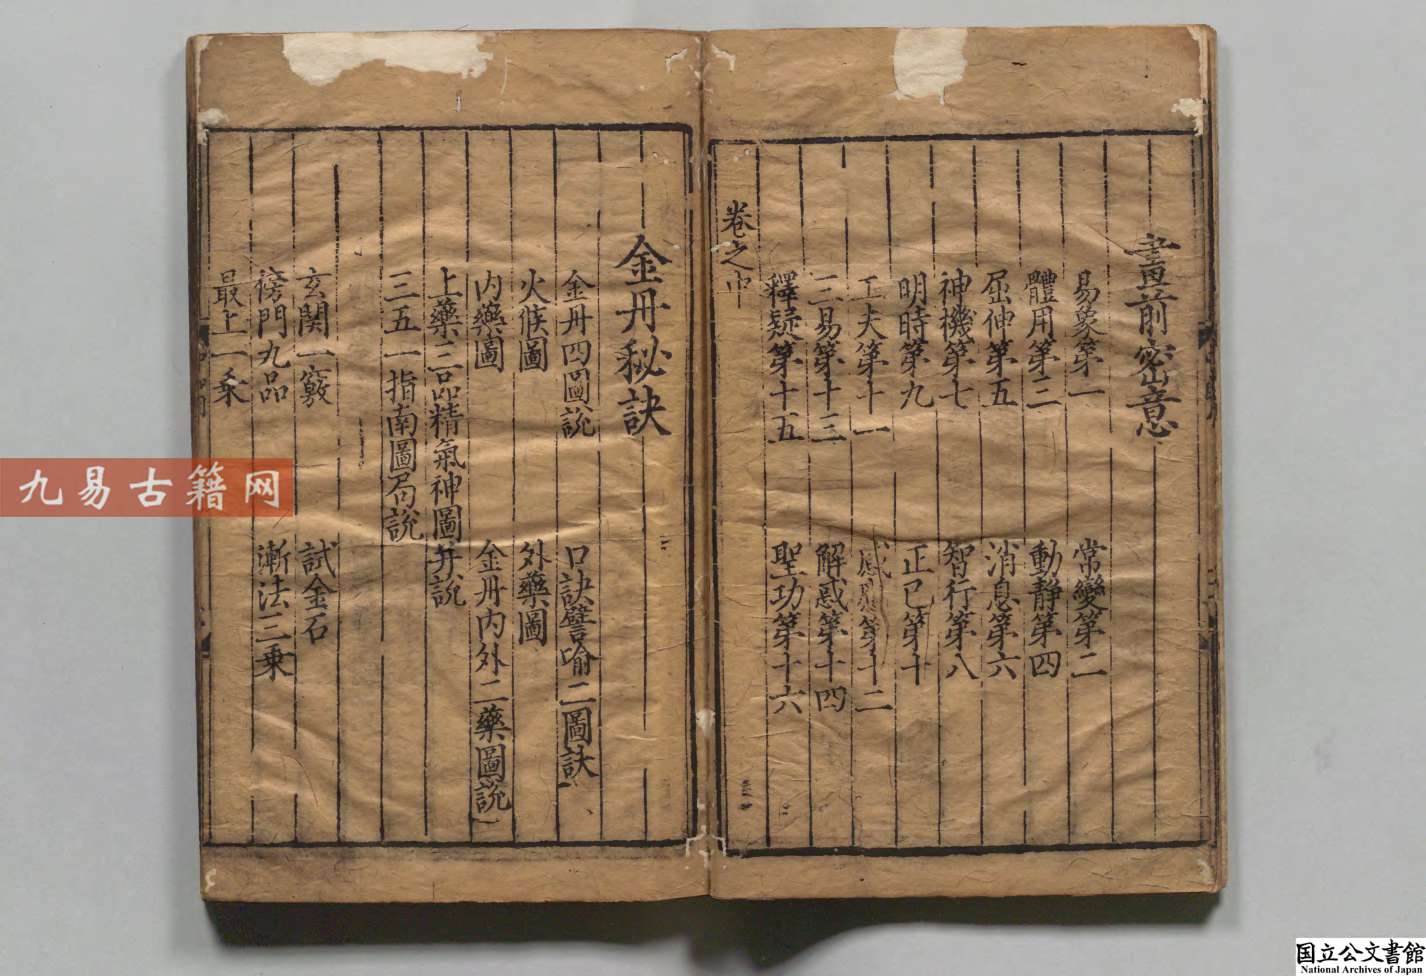 畫前密意
易象第一 常變第二
體用第三 動靜第四
屈伸第五 消息第六
神機第七 智行第八
明時第九 正己第十
工夫第十一 感應第十二
三易第十三 解惑第十四
釋疑第十五 聖功第十六
卷之中
金丹秘訣
金丹四圖說 口訣譬喻二圖訣
火候圖 外藥圖
內藥圖 金丹內外二藥圖說
上藥三品精氣神圖并說
三五一指南圖局說
玄関一竅 試金石
傍門九品 漸法三乗
最上一乗
九易古籍网
国立公文書館
National Archives of Japan